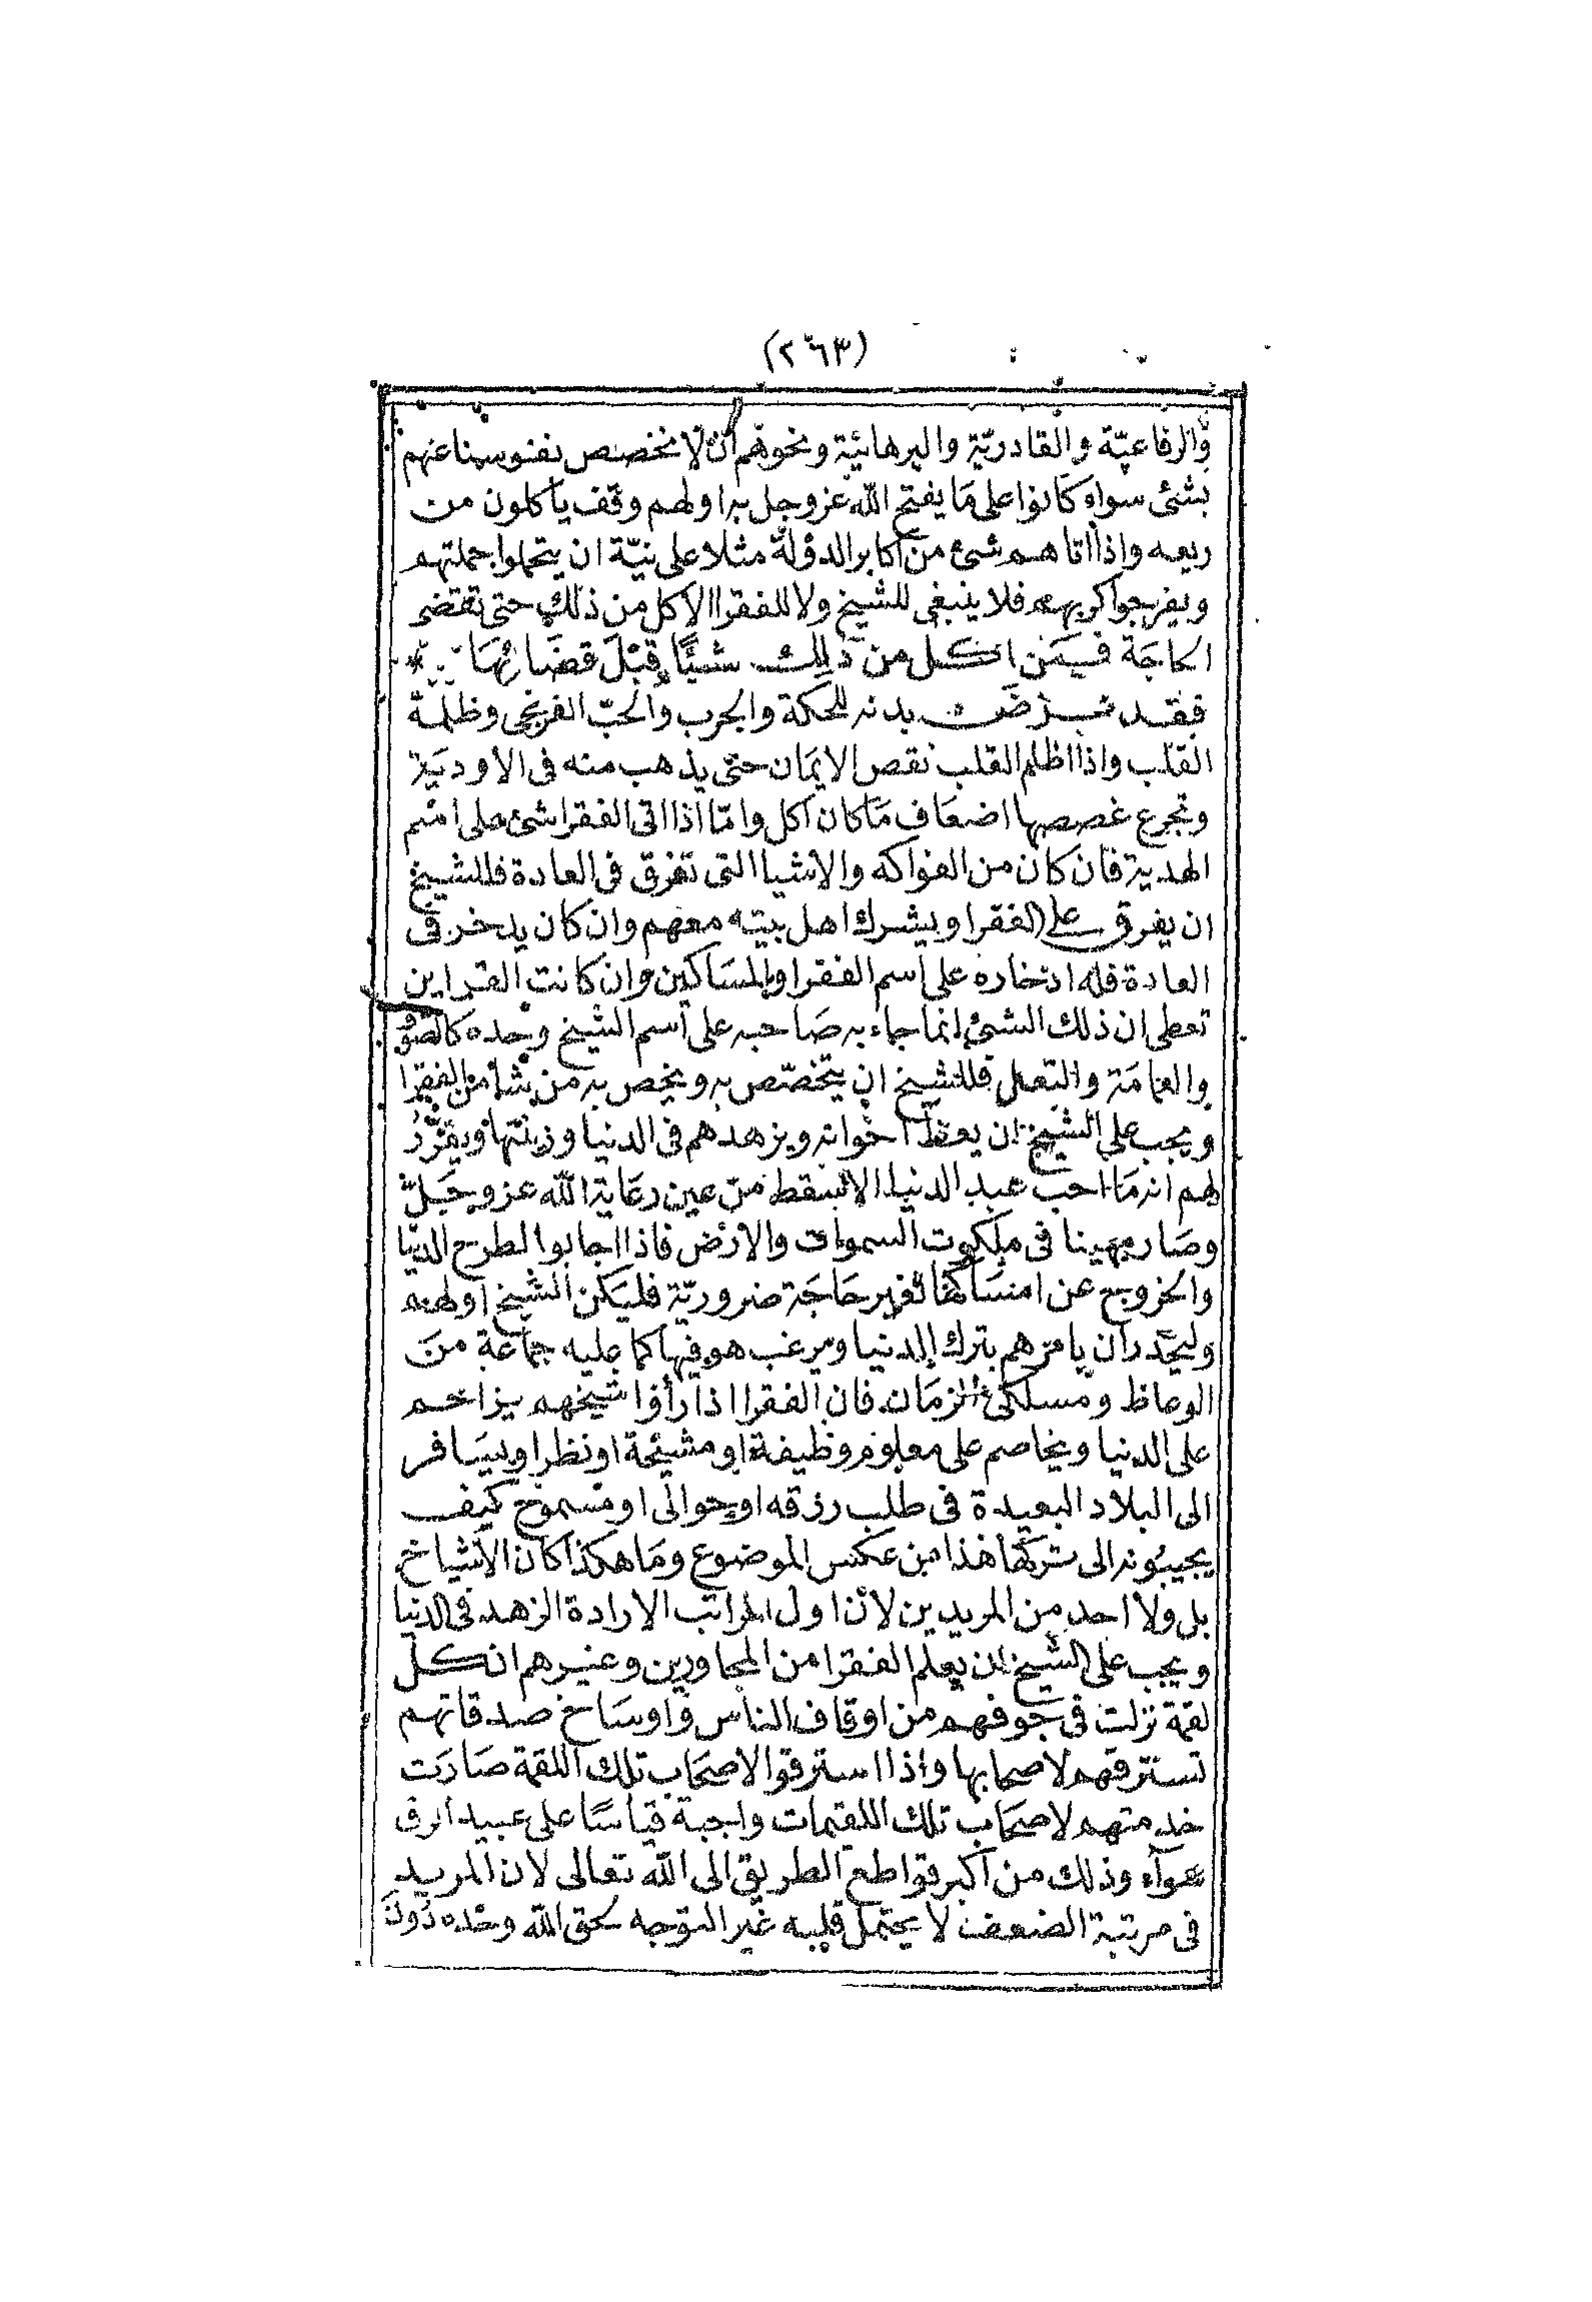 (٢٦٣)
والرفاعيّة والقادريّة والبرهانيّة ونحوهم أن لا نخصص نفوسنا عنهم
بشئ سواء كانوا على ما يفتح الله عزوجل به اولهم وقف يأكلون من
ريعه واذا اتاهم شئ من اكابر الدولة مثلا على نيّة ان يتحملوا حملتهم
ويفرجوا كربهم فلا ينبغى للشيخ ولا للفقرا الاكل من ذلك حتى تقتضى
الحاجة فـيمن اكـل من ذلك شيئًا قبْلَ قضَائهَا *
فقد عرض بدنه للحكة والجرب والحبّ الفرنجى وظلمة
القلب واذا اظلم القلب نقص الايمَان حتى يذهب منه فى الاودية
وتجرع غصصها اضعَاف مَا كان اكل وامّا اذا اتى الفقرا شئ على اسم
الهدية فان كان من الفواكه والاشيا التى تفرق فى العادة فللشيخ
ان يفرق على الفقرا ويشرك اهل بيته معهم وان كان يدخر فى
العادة فله ادخاره على اسم الفقرا والمسَاكين وان كانت القراين
تعطى ان ذلك الشئ انما جاء به صَاحبه على اسم الشيخ وحده كالصوف
والعمامَة والنعل فللشيخ ان يتخصّص به ويخص به من شأ من الفقرا
ويجب على الشيخ ان يعظ اخوانه ويزهدهم فى الدنيا وزينتها ويقرّرُ
لهم انه مَا احب عبد الدنيا الا سقط من عين رعَاية الله عز وجَلّ
وصَار مهينا فى ملكوت السموات والارْض فاذا اجابوا لطرح الدنيا
والخروج عن امسَاكها لغير حَاجَة ضروريّة فليكن الشيخ اولهم
وليحذر ان يامرهم بترك الدنيا ويرغب هو فيها كما عليه جماعة من
الوعاظ ومسلكى الزمَان فان الفقرا اذا رأوا شيخهم يزاحم
على الدنيا ويخاصم على معلوم وظيفة او مشيخة او نظر او يسَافر
الى البلاد البعيدة فى طلب رزقه او جوالى او مسموح كيف
يجيبُونه الى تركها هذا من عكس الموضوع ومَا هكذا كان الاشياخ
بل ولا احد من المريدين لانْ اول المراتب الارادة الزهد فى الدنيا
ويجب على الشيخ ان يعلم الفقرا من المجاورين وغيرهم ان كـل
لقمة نزلت فى جوفهم من اوقاف الناس واوسَاخ صدقاتهم
تسترقهم لاصحابها واذا استرقوا لاصحَاب تلك اللقمة صَارَت
خدمتهم لاصحَاب تلك اللقيمات واجبة قياسًا على عبيد الرق
سوآء وذلك من اكبر قواطع الطريق الى الله تعالى لان المريد
فى مرتبة الضعف لا يحتمل قلبه غير التوجه لحق الله وحْده دُونَ